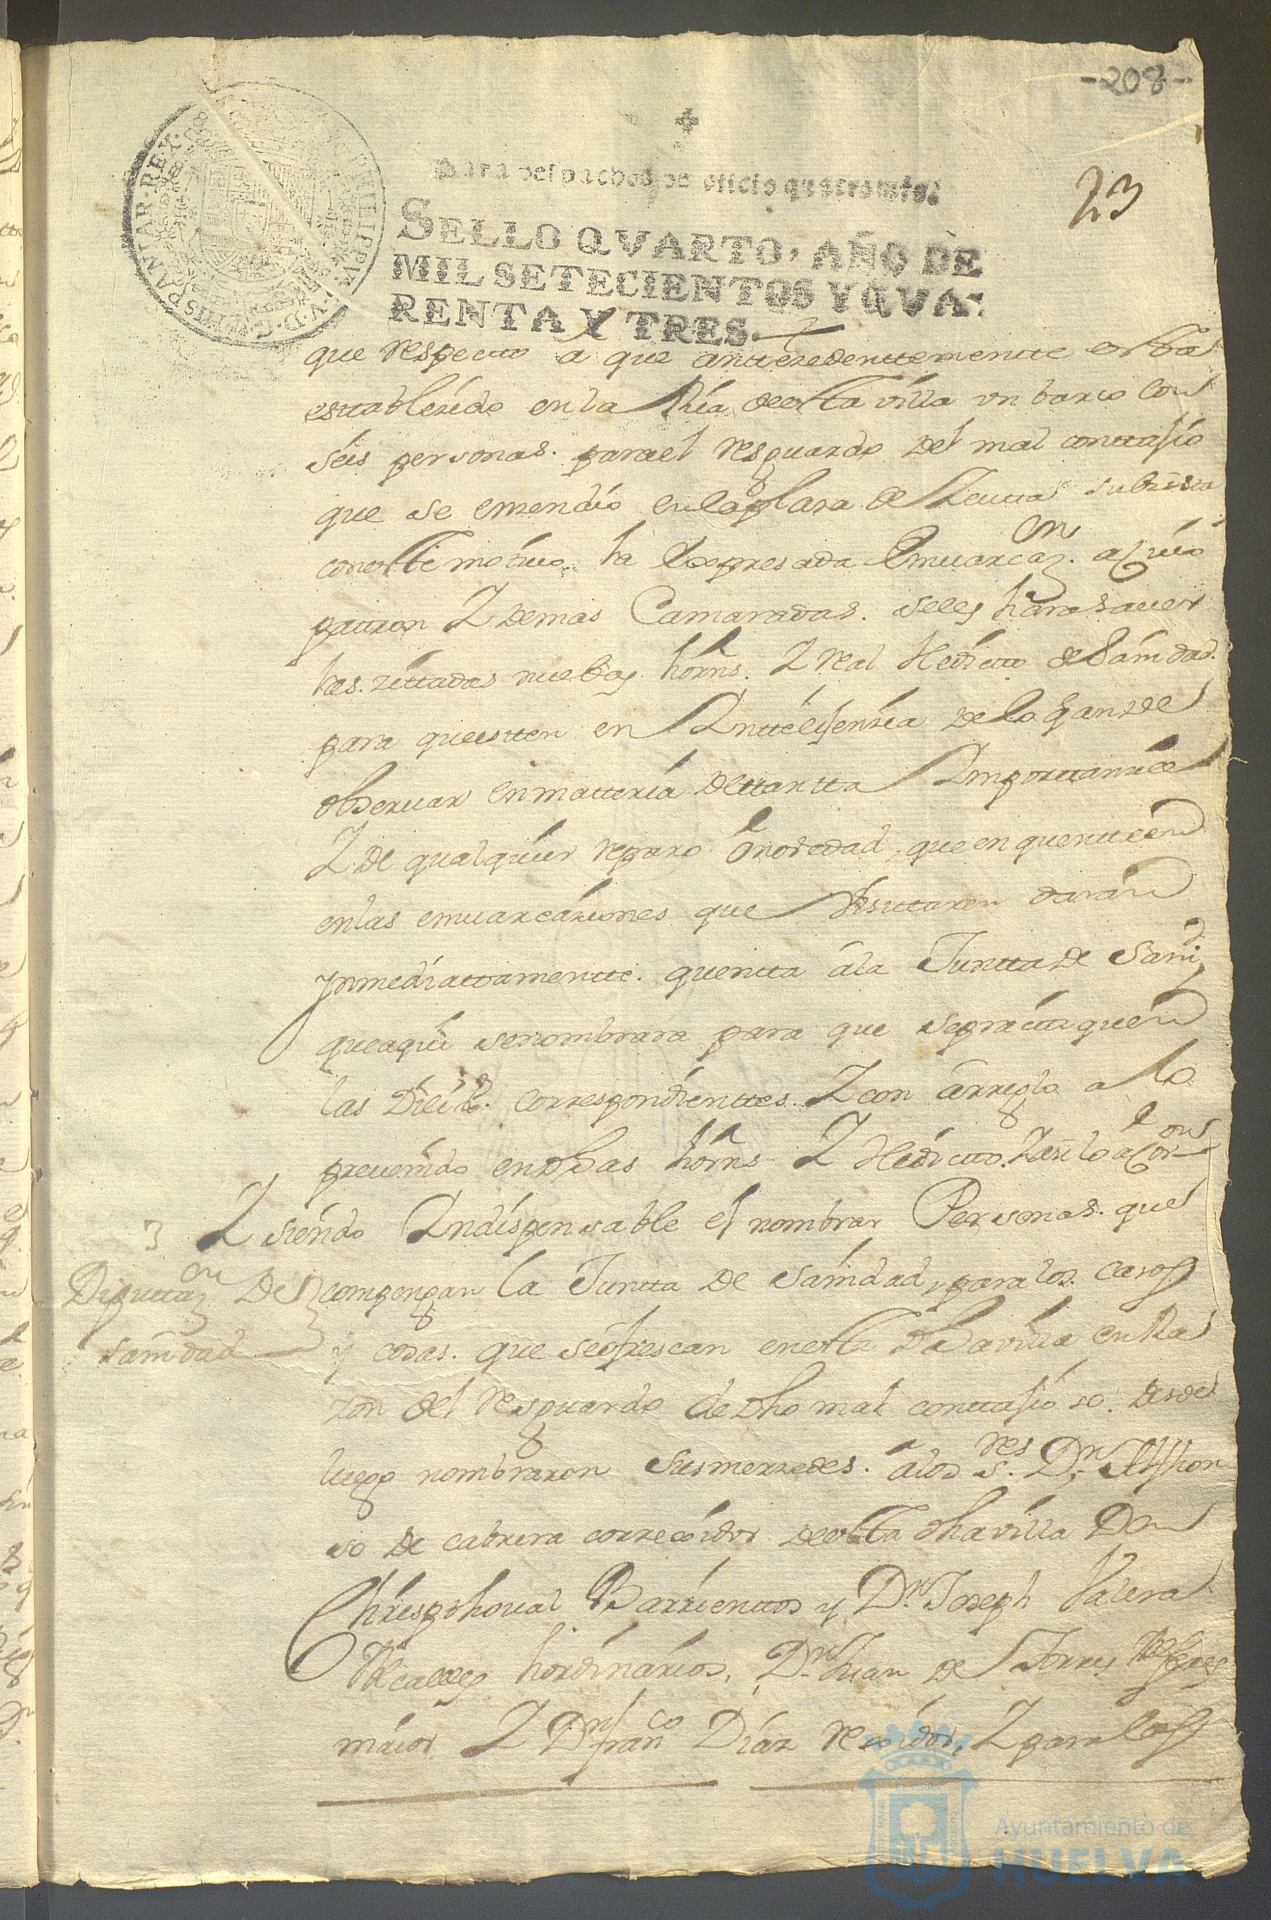 -208-
23
PHILIPPUS V D G HISPANIAR REX
Para despachos de oficio quatro mrs.
SELLO QVARTO, AÑO DE
MIL SETECIENTOS Y QVA-
RENTA Y TRES.
que respecto a que anttezedenttemente estta
esttablezido en la Ria de estta villa vn barco con
séis personas. para el resguardo del mal conttajio
que se enzendio en la plaza de Zeutta subsista
con estte motiuo la Expresada Emuarcaz.on a Cuio
pattron Y demas Camaradas. se les hara sauer
las zittadas nuebas hórns. Y real Hedictto de Sanidad.
para que esten en Ynttelijenzia de lo q an de
obseruar en matteria de tantta Ymporttanzia
Y de qualquier reparo ó nobedad, que enquenttren
en las emuarcaziones que Visittaren daran
ynmediattamentte. quentta á la Juntta de Sanid
que aqui se nombrara para que se practtiquen
las Dilix.s correspondienttes. Y con arreglo a lo
preuenido en dhas hórns Y Hedictto. Y assi lo acordaron
3 Y siendo Yndispensable el nombrar Personas. que
Diputtaz.on De compongan la Juntta de Sanidad, para los casos
sanidad y cosas. que se ofrescan en estta dha villa en Ra
zon del resguardo de dho mal conttajioso. desde
luego nombraron Susmerzedes. á los S.res D.n Alfhon
so de cabrera correxidor de estta dha villa D.n
Chrisptoual Barrienttos y D.n Joseph Valera
Alcaldes hordinarios, D.n Juan de Torres
maior Y D.n fran.co Diaz rexidor, Y para los
Ayuntamiento de
HUELVA